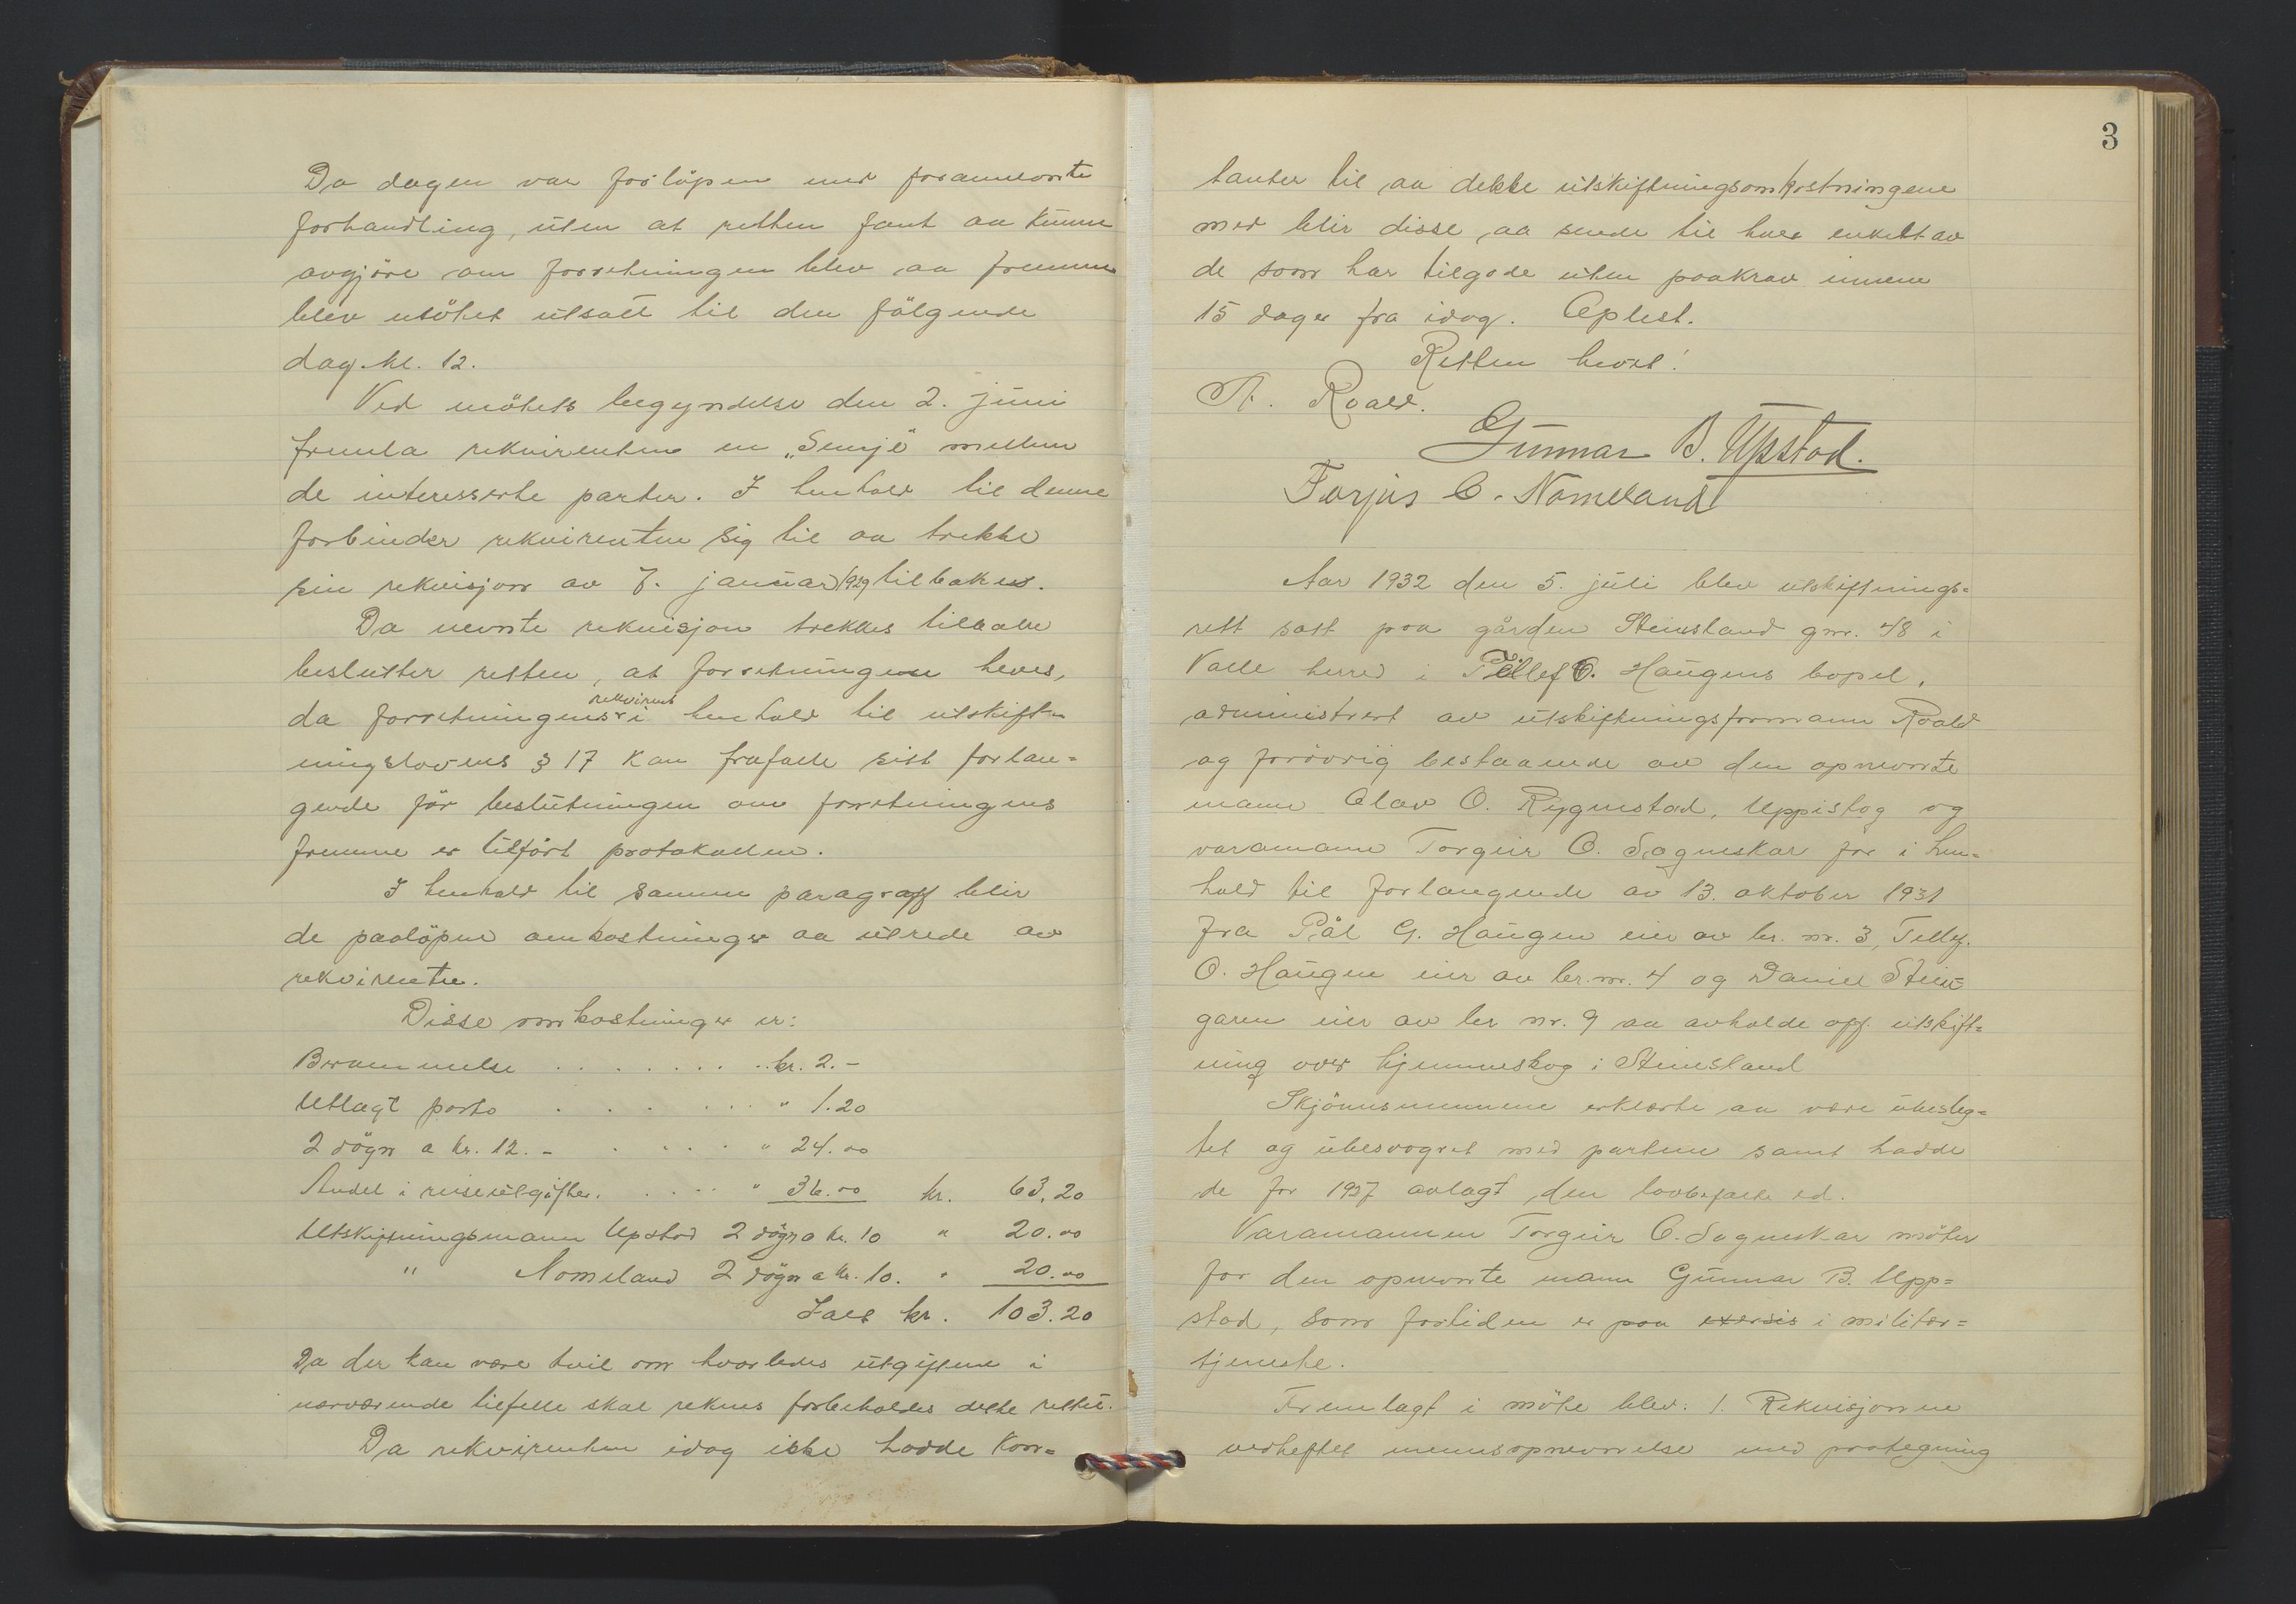 Da dagen var forløpen med forannevnte
forhandling, uten at retten fant aa kunne
avgjöre om forretningen blev aa fremme
blev mötet utsatt til den fölgende
dag kl. 12.
Ved mötets begyndelse den 2. juni
fremla rekvirenten en „Semje" mellem
de interesserte parter. I henhold til denne
forbinder rekvirenten sig til aa trekke
sin rekvisjon av 7. januar 1929 tilbake.
Da nevnte rekvisjon trekkes tilbake
beslutter retten, at forretningen heves,
rekvirent
da forretningens i henhold til utskift-
ningslovens § 17 kan frafalle sitt forlan=
gende för beslutningen om forretningens
fremme er tilfört protokollen.
I henhold til samme paragraff blir
de paalöpne omkostninger aa utrede av
rekvirenten.
Disse omkostninger er:
Berammelse . . . . . . . . . kr. 2.-
Utlagt porto . . . . . . . " 1.20
2 dögn a kr. 12.- . . . . . " 24.00
Andel i reiseutgifter. . . . . " 36.00 kr. 63.20
Utskiftningsmann Upstad 2 dögn a kr. 10 " 20.00
" Nomeland 2 dögn a kr. 10. " 20.00
Ialt kr. 103.20
Da der kan være tvil om hvorledes utgiftene i
nærværende tilfelle skal reknes forbeholdes dette rettet.
Da rekvirenten idag ikke hadde kon=
3
tanter til aa dekke utskiftningsomkostningene
med blir disse aa sende til hver enkelt av
de som har tilgode uten paakrav innen
15 dager fra idag. Oplest.
Retten hevet!
A. Roald.
Gunnar B. Upstad.
Torjus O. Nomeland
Aar 1932 den 5. juli blev utskiftnings=
rett satt paa gården Steinsland gnr. 48 i
Valle herred i Tellef O. Haugens bopel,
administrert av utskiftningsformann Roald
og forövrig bestaaende av den opnevnte
mann Olav O. Rygnestad, Uppistog og
varamann Torgeir O. Sagneskar for i hen=
hold til forlangende av 13. oktober 1931
fra Pål G. Haugen eier av br. nr. 3, Tellef
O. Haugen eier av br. nr. 4 og Daniel Stein=
garen eier av br nr. 9 aa avholde off. utskift=
ning over hjemmeskog i Steinsland
Skjönnsmennene erklærte aa være ubesleg=
tet og ubesvogret med partene samt hadde
de for 1937 avlagt den lovbefalte ed.
Varamannen Torgeir O. Sagneskar möter
for den opnevnte mann Gunnar B. Upp=
stad, som fortiden er paa exersis i militær=
tjeneste.
Fremlagt i möte blev: 1. Rekvisjonene
vedheftet mennsopnevnelse med paategning